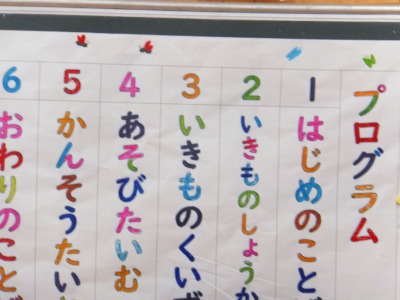 プログラム
1 はじめのことば
2 いきものしょうか
3 いきものくいず
4 あそびたいむ
5 かんそうたい
6 おわりのことば